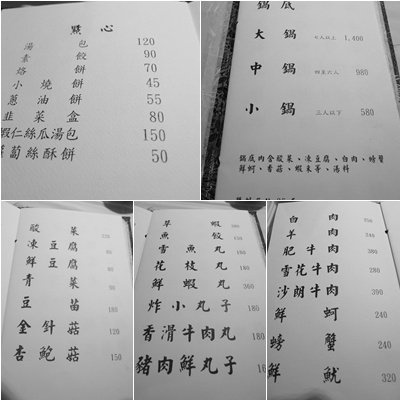 點心
湯包 120
素餃 90
烙餅 70
小燒餅 45
蔥油餅 55
韭菜盒 80
蝦仁絲瓜湯包 150
蘿蔔絲酥餅 50
鍋底
大鍋 七人以上 1,400
中鍋 四至六人 980
小鍋 三人以下 580
鍋底內含酸菜、凍豆腐、白肉、螃蟹
鮮蚵、香菇、蝦米等、湯料
酸菜 220
凍豆腐 80
鮮豆腐 80
青菜
豆苗 180
金針菇 180
杏鮑菇 150
草蝦 300
魚餃
雪魚丸
花枝丸 180
鮮蝦丸 360
炸小丸子 180
香滑牛肉丸 180
豬肉鮮丸子
白肉
羊肉
肥牛肉 380
雪花牛肉 240
沙朗牛肉 390
鮮蚵 240
螃蟹 240
鮮魷 320